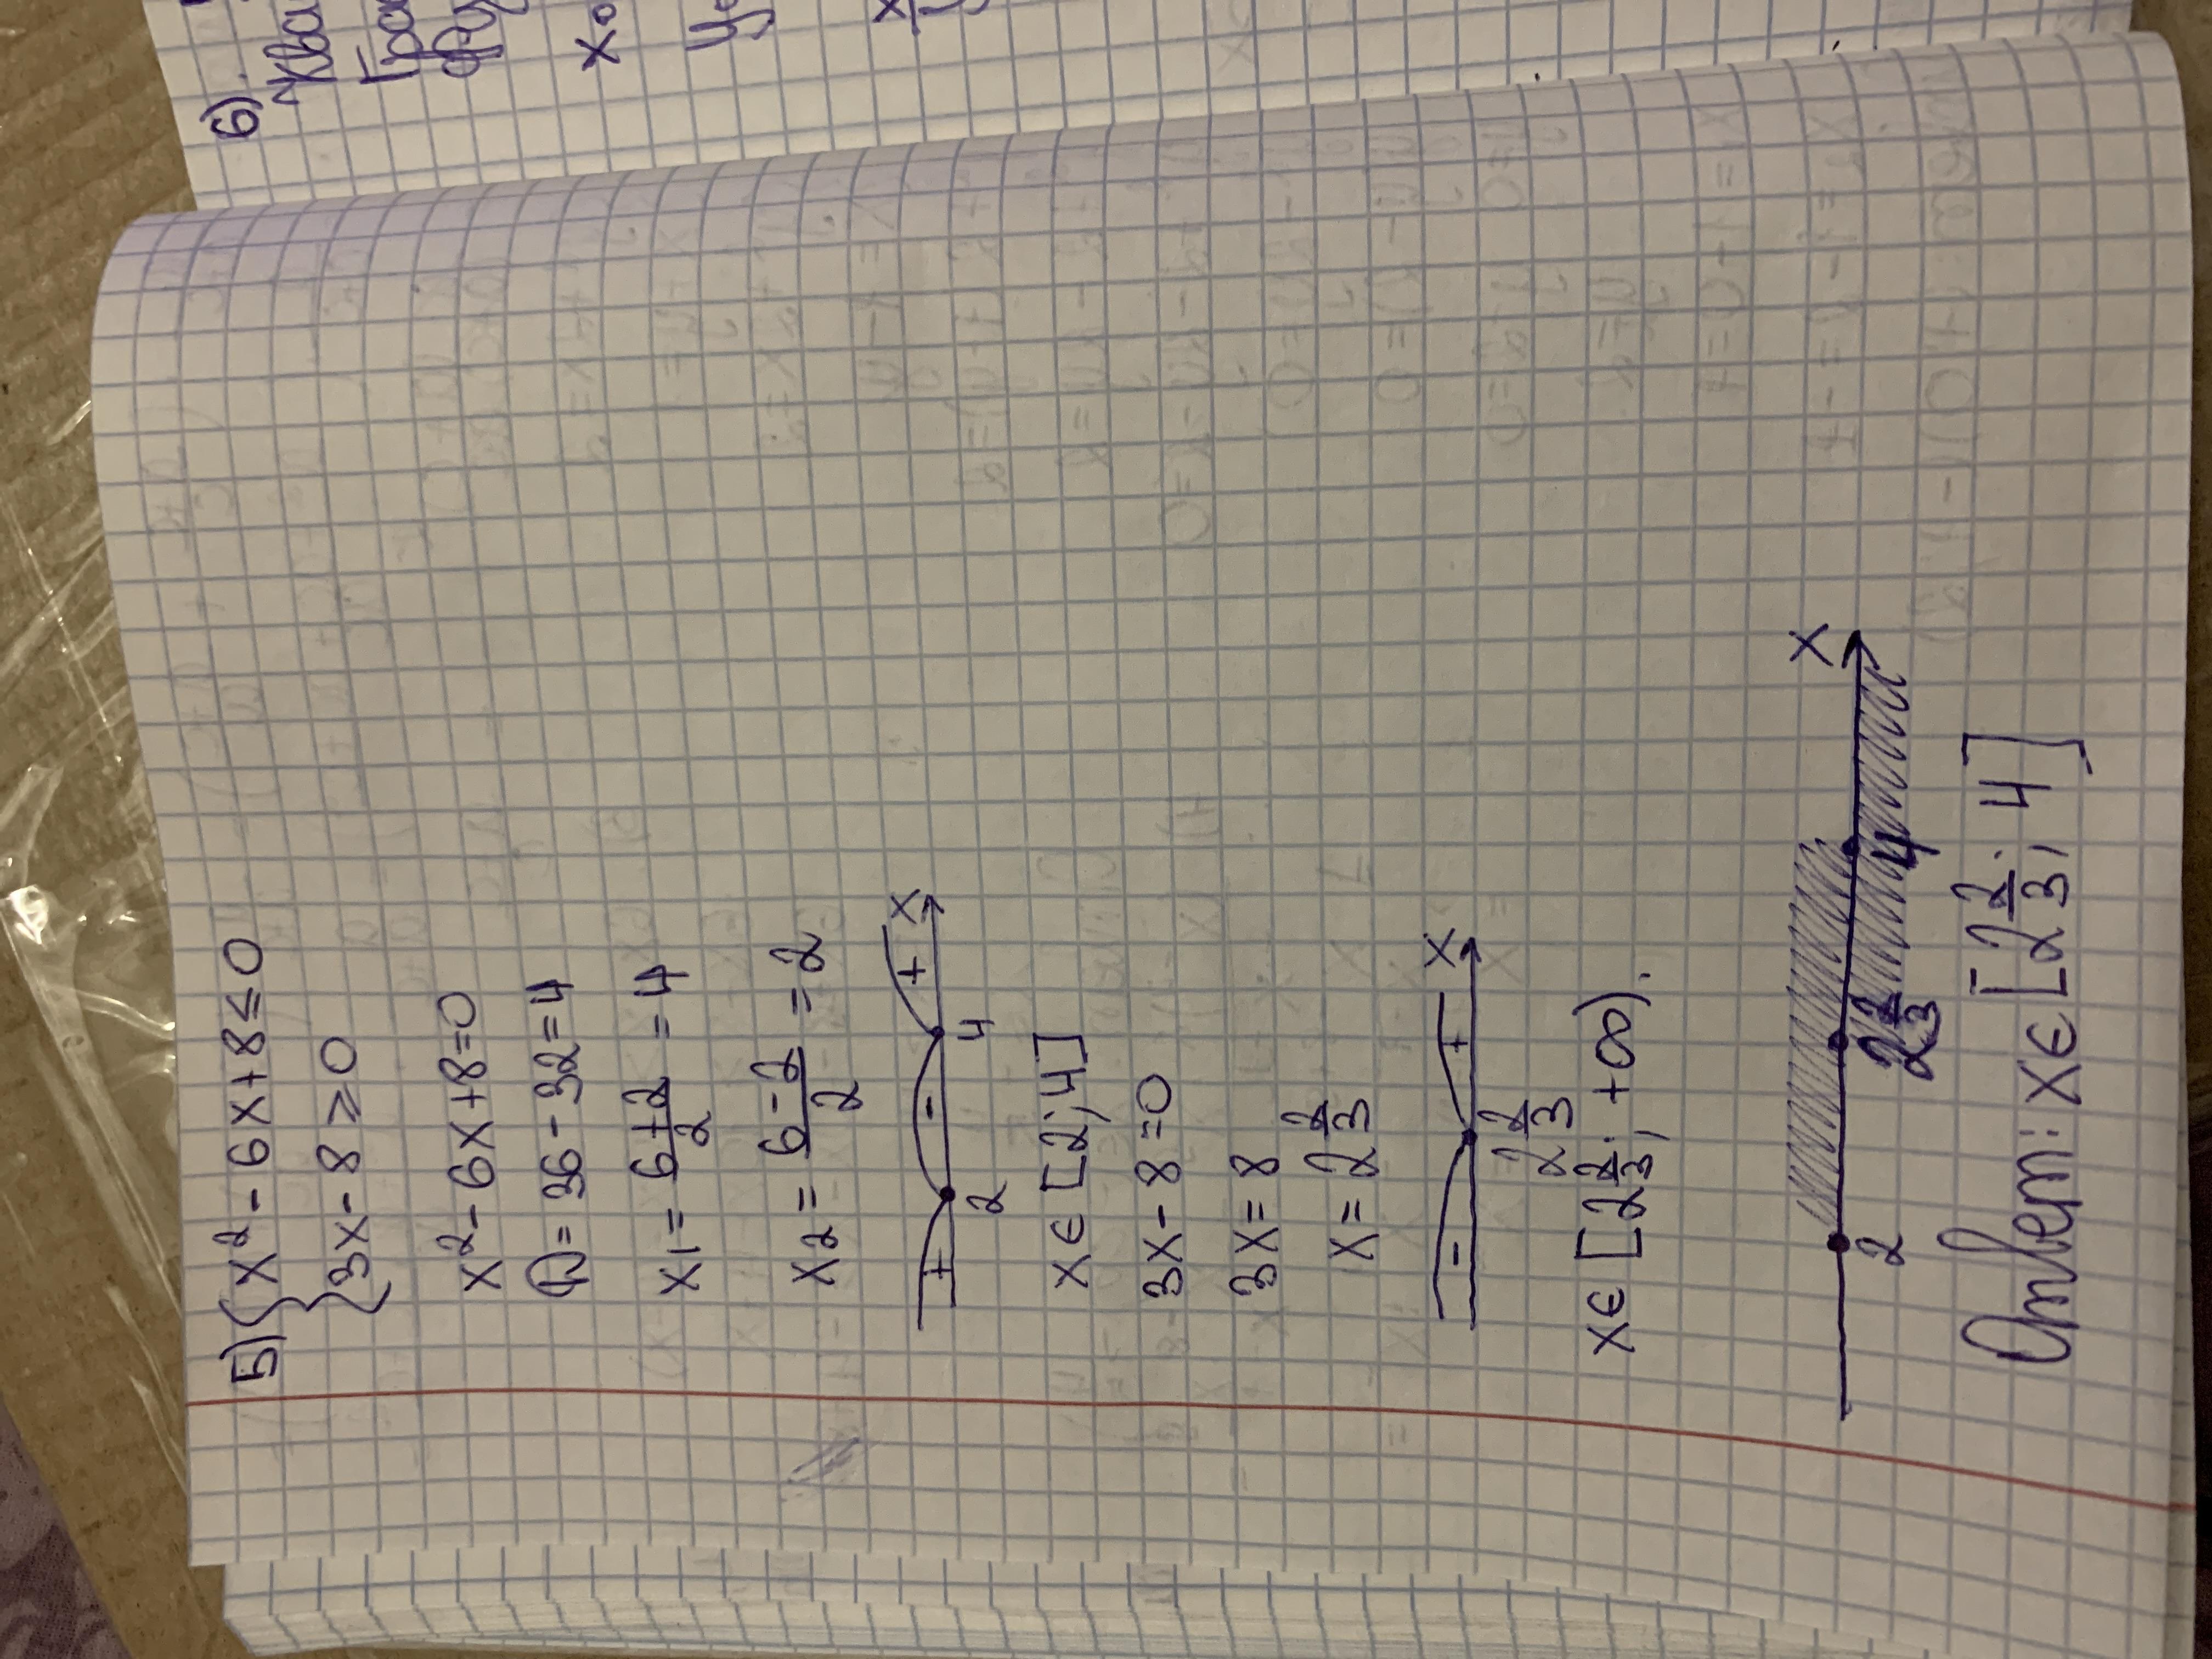 5) { x² - 6x + 8 ≤ 0
3x - 8 ≥ 0
x² - 6x + 8 = 0
D = 36 - 32 = 4
x₁ = (6+2)/2 = 4
x₂ = (6-2)/2 = 2
+ - + x
2 4
x ∈ [2; 4]
3x - 8 = 0
3x = 8
x = 2 2/3
- + x
2 2/3
x ∈ [2 2/3; +∞).
x
2 2 2/3 4
Ответ: x ∈ [2 2/3; 4]
6).
x₀